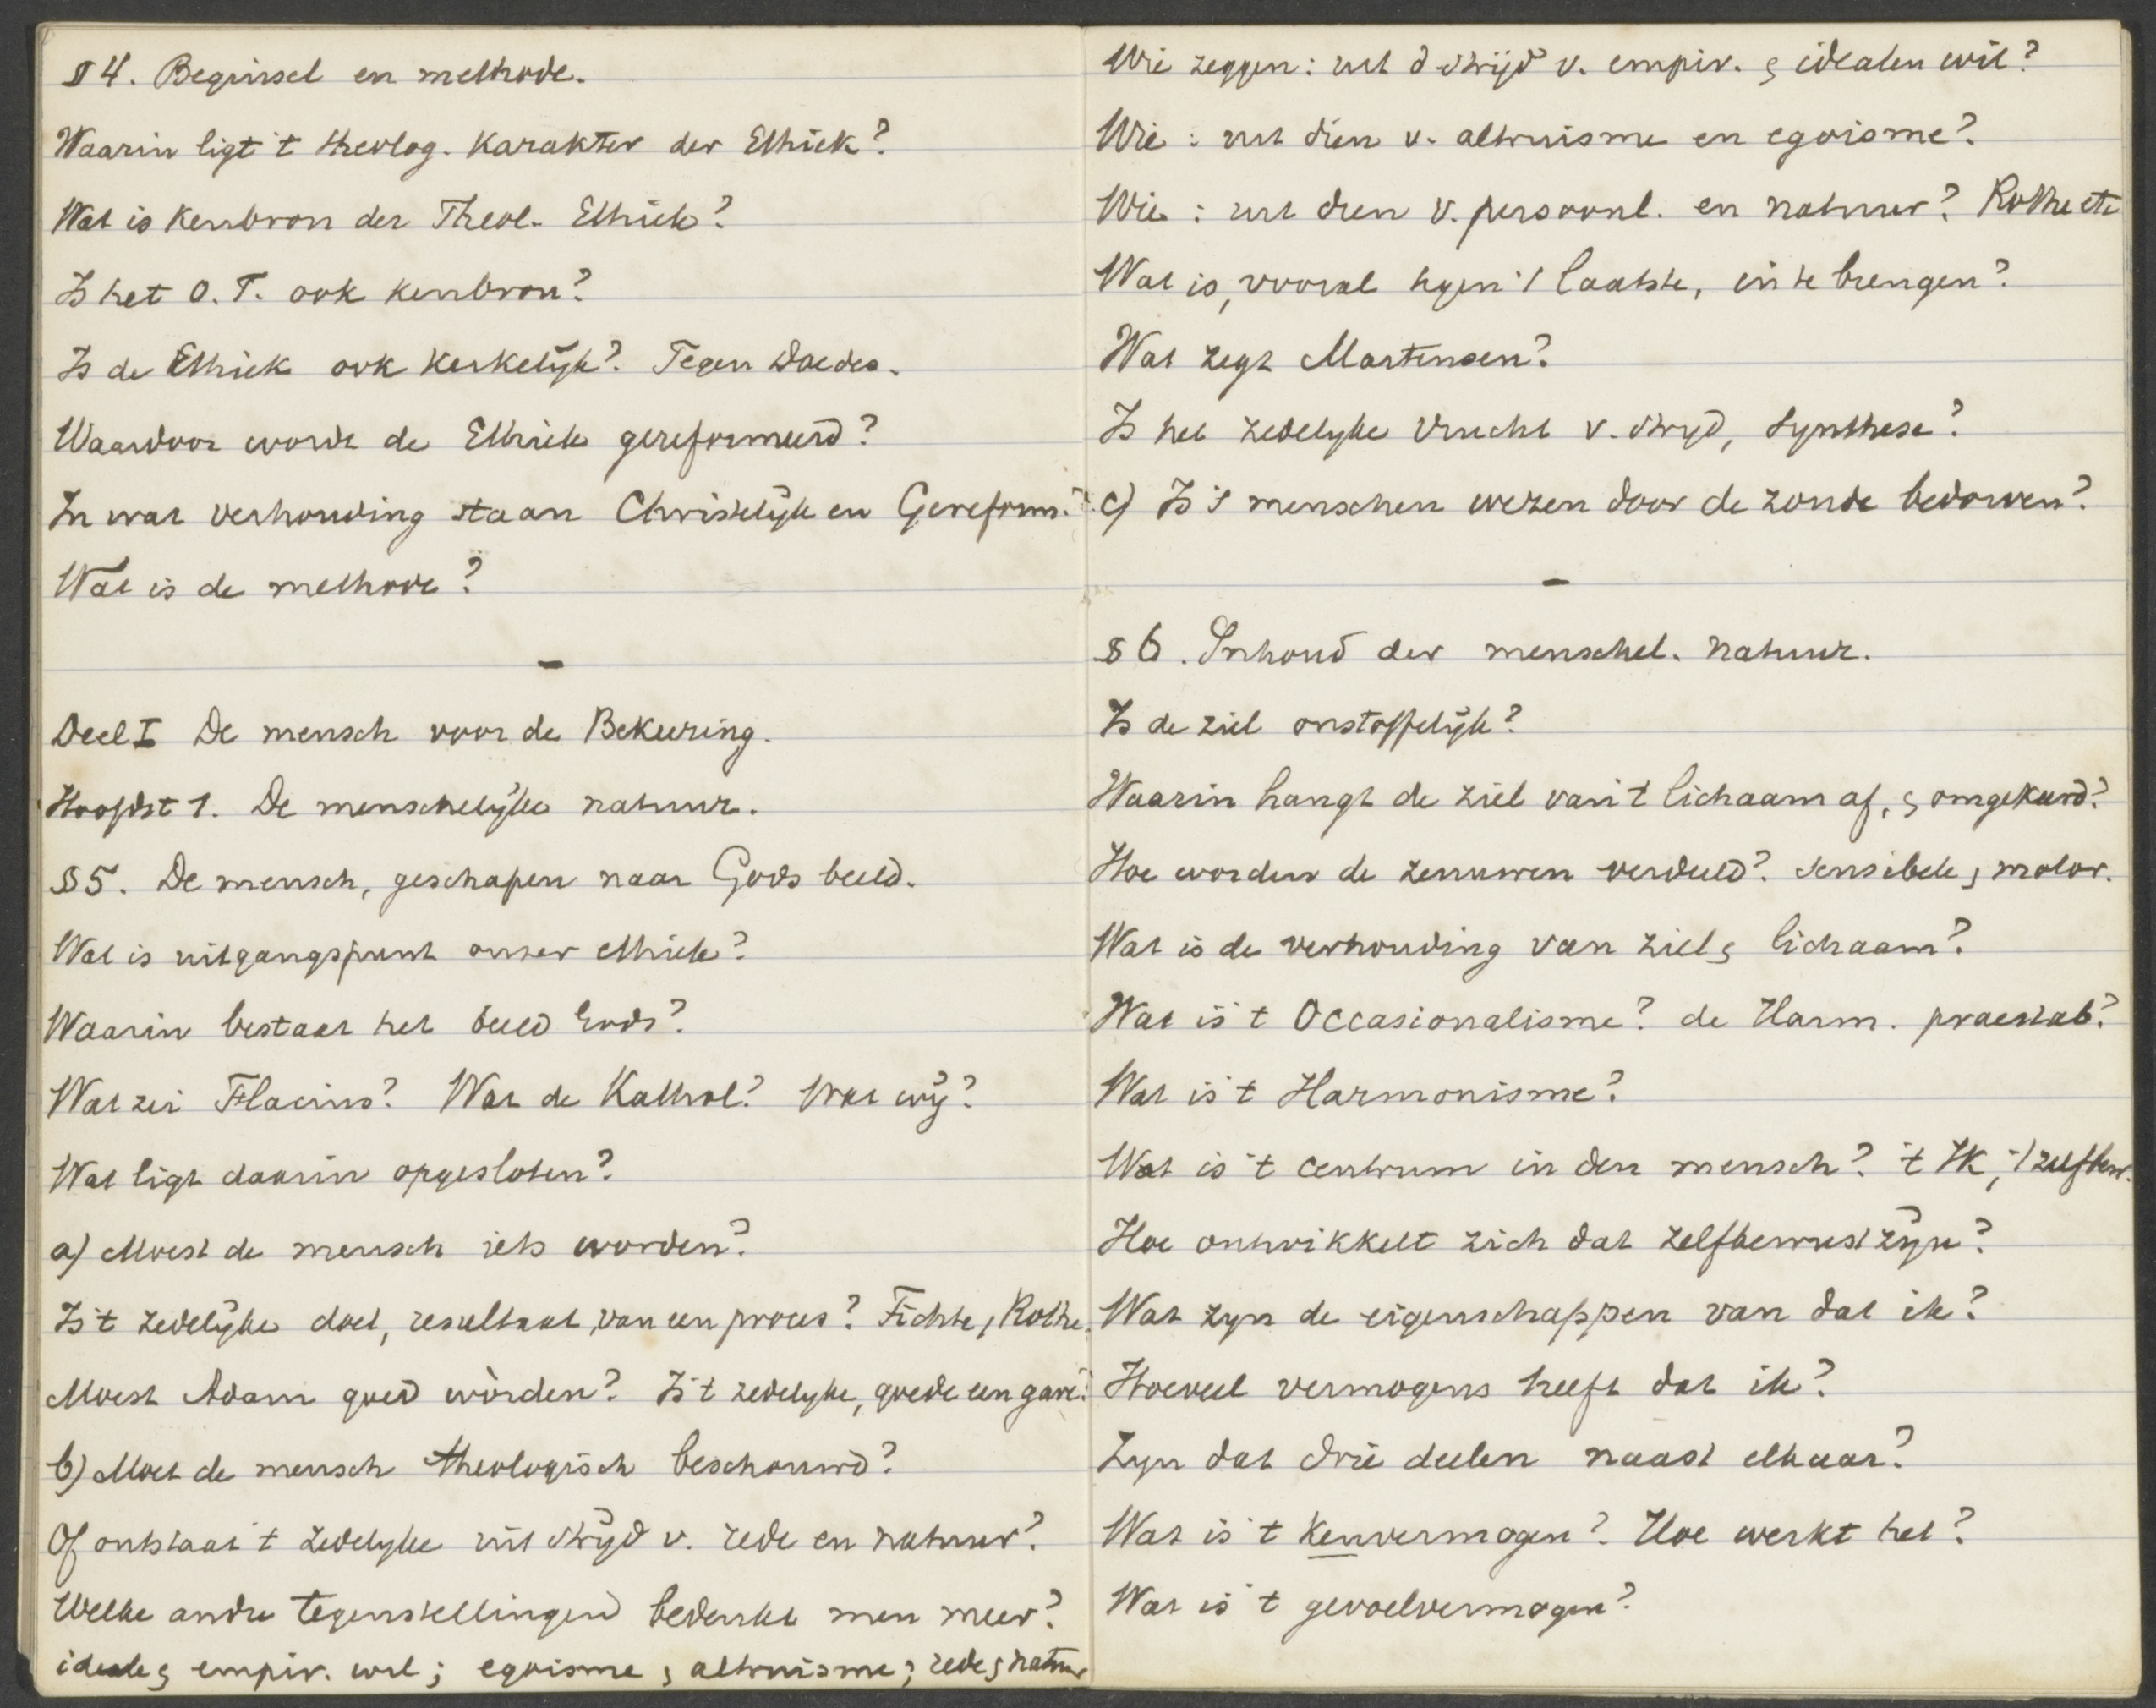 § 4. Beginsel en methode.
Waarin ligt 't theolog. karakter der Ethiek?
Wat is kenbron der Theol. Ethiek?
Is het O. T. ook kenbron?
Is de Ethiek ook kerkelijk? Tegen Doedes.
Waardoor wordt de Ethiek gereformeerd?
In wat verhouding staan Christelijk en Gereform.?
Wat is de methode?
Deel I De mensch voor de Bekeering.
Hoofdst 1. De menschelijke natuur.
§ 5. De mensch, geschapen naar Gods beeld.
Wat is uitgangspunt onzer ethiek?
Waarin bestaat het beeld Gods?
Wat zei Flacius? Wat de Kathol? Wat wij?
Wat ligt daarin opgesloten?
a) Moest de mensch iets worden?
Is 't zedelijke doel, resultaat van een proces? Fichte, Rothe.
Moest Adam goed wòrden? Is 't zedelyke, goede een gave?
b) Moet de mensch theologisch beschouwd?
Of ontstaat 't zedelyke uit strijd v. rede en natuur?
Welke andre tegenstellingen bedenkt men meer?
ideale & empir. wil; egoisme & altruisme; rede & natuur
Wie zeggen: uit d strijd v. empir. & idealen wil?
Wie : uit dien v. altruisme en egoisme?
Wie : uit dien v. persoonl. en natuur? Rothe etc
Wat is, vooral tegen 't laatste, in te brengen?
Wat zegt Martensen?
Is het zedelyke vrucht v. stryd, synthese?
c) Is 's menschen wezen door de zonde bedorven?
§ 6. Inhoud der menschel. natuur.
Is de ziel onstoffelijk?
Waarin hangt de ziel van 't lichaam af, & omgekeerd?
Hoe worden de zenuwen verdeeld? sensibele & motor.
Wat is de verhouding van ziel & lichaam?
Wat is 't Occasionalisme? de Harm. praestab?
Wat is 't Harmonisme?
Wat is 't centrum in den mensch? 't Ik, 't zelfbew.
Hoe ontwikkelt zich dat zelfbewustzijn?
Wat zyn de eigenschappen van dat ik?
Hoeveel vermogens heeft dat ik?
Zyn dat drie deelen naast elkaar?
Wat is 't kenvermogen? Hoe werkt het?
Wat is 't gevoelvermogen?